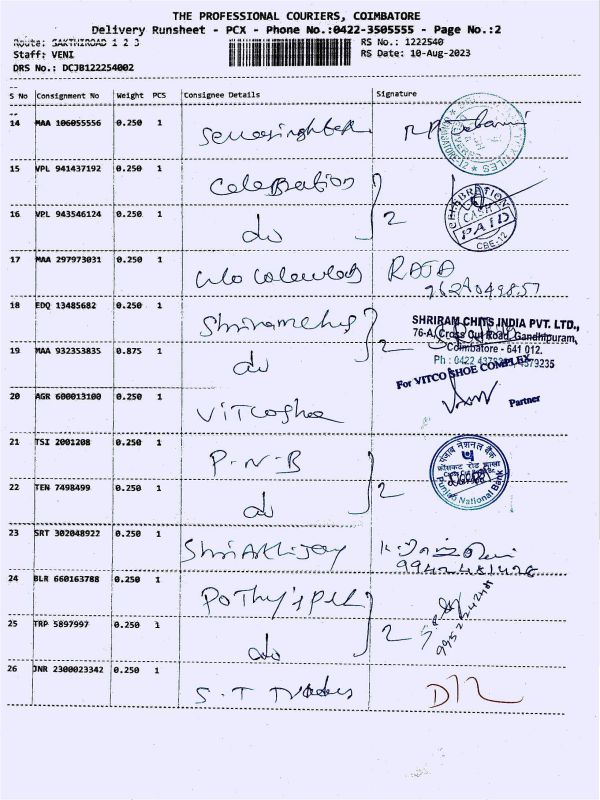 THE PROFESSIONAL COURIERS, COIMBATORE
Delivery Runsheet - PCX - Phone No.:0422-3505555 - Page No.:2
Route: SAKTHIROAD 1 2 3 RS No.: 1222540
Staff: VENI RS Date: 10-Aug-2023
DRS No.: DCJB122254002
S No Consignment No Weight PCS Consignee Details Signature
14 MAA 106055556 0.250 1
15 VPL 941437192 0.250 1 Celebration
CELEBRATION
CASH
PAID
CBE-12
16 VPL 943546124 0.250 1 do 2
17 MAA 297973031 0.250 1 RAJA
18 EDQ 13485682 0.250 1
SHRIRAM CHITS INDIA PVT. LTD.,
76-A, Cross Cut Road, Gandhipuram,
Coimbatore - 641 012.
19 MAA 932353835 0.875 1 do 2
For VITCO SHOE COMPLEX
Partner
20 AGR 600013100 0.250 1 Vitcoshoe
21 TSI 2001208 0.250 1 P-N-B
पंजाब नैशनल बैंक
Punjab National Bank
22 TEN 7498499 0.250 1 do 2
23 SRT 302048922 0.250 1
24 BLR 660163788 0.250 1
25 TRP 5897997 0.250 1 do 2
26 JNR 2300023342 0.250 1 S.T Traders